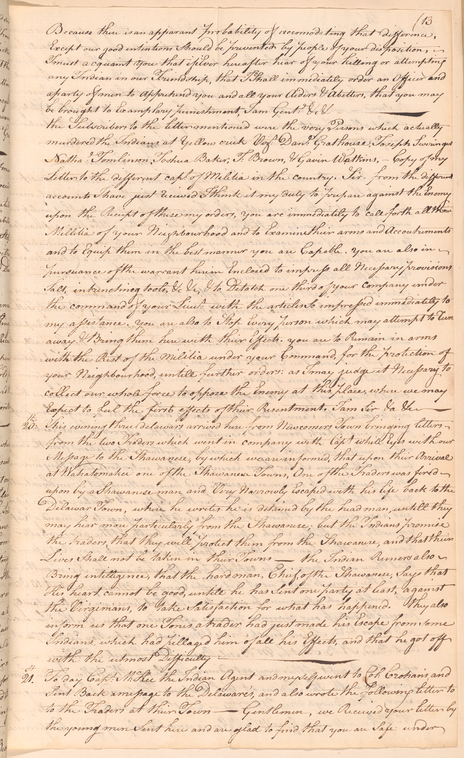 (13
Because there is an apparant Probability of accomodating that difference,
Except our good intentions Should be prevented by people of your disposition,
I must acquaint you that if I ever hereafter hear of your killing or attempting
any Indian in our Friendship, that I shall immediately order an Officer and
a party of men to apprehend you and all your Aiders & Abettors, that you may
be brought to Examplary punishment, I am Gentn &c &c
the Subscribers to the letter mentioned were the very Persons which actually
murdered the Indians at Yellow creek Vizt Danl Greathouse, Joseph Swearingen
Nathl Tomlinson, Joshua Baker, J. Brown, & Gavin Watkins, — Copy of my
Letter to the different capts of Militia in the country. Sir. from the different
accounts I have just received I think it my duty to prepare against the Enemy
upon the Receipt of these my orders, you are immediately to call forth all the
Militia of your Neighbourhood and to Examine their arms and Accoutrements
and to Equip them in the best manner you are Capable. you are also in
pursuance of the warrant herein Enclosed to impress all Necessary provisions
Salt, intrenching tools, &c, &c, & to Detatch one third of your Company under
the command of your Lieut with the articles so impressed immediately to
my assistance, you are also to Stop every person which may attempt to run
away & Bring them here with their Effects; you are to Remain in arms
with the Rest of the Militia under your Command, for the protection of
your Neighbourhood, untill further orders: as I may judge it Necessary to
collect our whole forces to oppose the Enemy at this place, where we may
Expect to feel the first effects of their Resentment, I am Sir &c &c —
20. This evening three delawars arrived here from Newcomers Town bringing letters
from the two Traders which went in company with Capt whitEyes with our
Message to the Shawanese, by which we was informed, that upon their Arrival
at Wakatomakie one of the Shawanese Towns, One of the Traders was fired
upon by a Shawanese man and Very Narrowly Escaped with his life back to the
Delawar Town, where he writes he is detained by the head men, untill they
may hear more particularly from the Shawanese, but the Indians promise
the Traders, that they will protect them from the Shawanese, and that their
Lives Shall not be taken in their Towns — the Indian Runners also
Bring intelligence, that the hard man, Chief of the Shawanese, Says that
His heart cannot be good, untill he has Sent one party at least, against
the Virginians, to take Satisfaction for what has happened. They also
inform us that one Jones a trader had just made his Escape from Some
Indians, which had pillaged him of all his Effects, and that he got off
with the utmost Difficulty
21. To day Capt McKee the Indian Agent and myself went to Col. Croghans and
Sent Back a message to the Delawares, and also wrote the following letter to
to the Traders at their Town — Gentlemen, we Received your letter by
the young men Sent here and are glad to find that you are Safe under